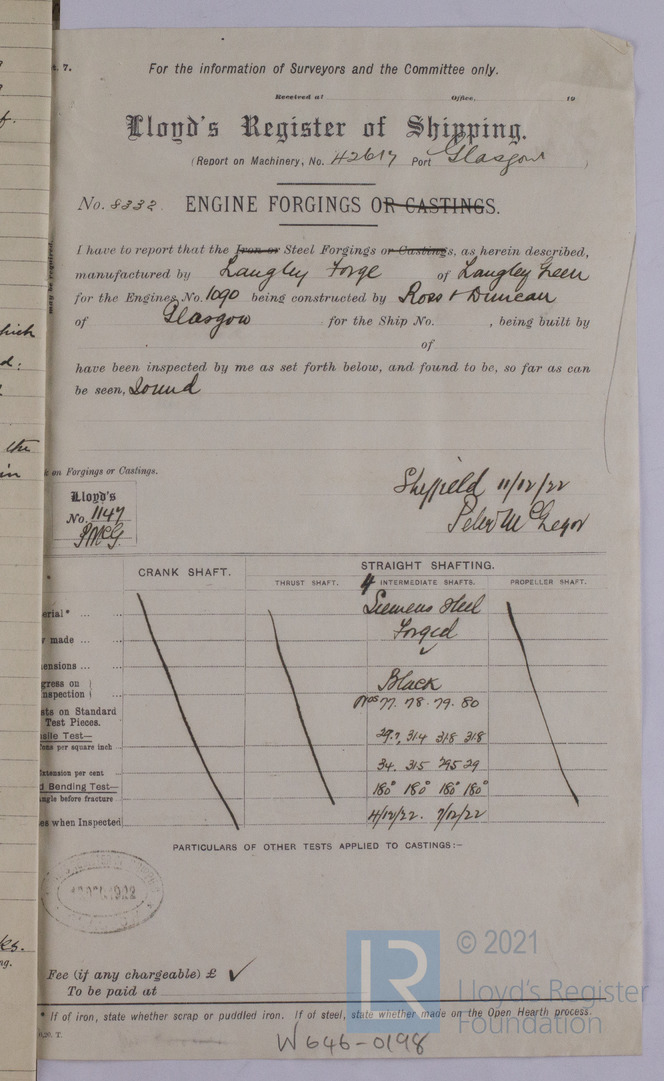 t. 7.
For the information of Surveyors and the Committee only.
Received at Office, 19
Lloyd's Register of Shipping.
(Report on Machinery, No. 42617 Port Glasgow)
No. 8332. ENGINE FORGINGS OR CASTINGS.
I have to report that the Iron or Steel Forgings or Castings, as herein described,
manufactured by Langley Forge of Langley Green
for the Engines, No. 1090 being constructed by Ross & Duncan
of Glasgow for the Ship No. , being built by
of
have been inspected by me as set forth below, and found to be, so far as can
be seen, Sound
may be required.
k on Forgings or Castings.
Lloyd's
No. 1147
P.McG.
Sheffield 11/12/22
Peter McGregor
CRANK SHAFT. STRAIGHT SHAFTING.
THRUST SHAFT. 4 INTERMEDIATE SHAFTS. PROPELLER SHAFT.
erial* ... ... Siemens Steel
r made ... ... Forged
ensions ... ...
gress on
nspection Black
sts on Standard Nos 77. 78. 79. 80
Test Pieces.
sile Test—
Tons per square inch 29.7, 31.4 31.8 31.8
Extension per cent 34. 31.5 29.5 29
d Bending Test— 180° 180° 180° 180°
ngle before fracture
es when Inspected 4/12/22. 7/12/22
PARTICULARS OF OTHER TESTS APPLIED TO CASTINGS:–
Fee (if any chargeable) £ ✓
To be paid at
* If of iron, state whether scrap or puddled iron. If of steel, state whether made on the Open Hearth process.
0,20. T.
W646-0198
© 2021
Lloyd's Register
Foundation
hich
d:
the
in
ks.
ng.